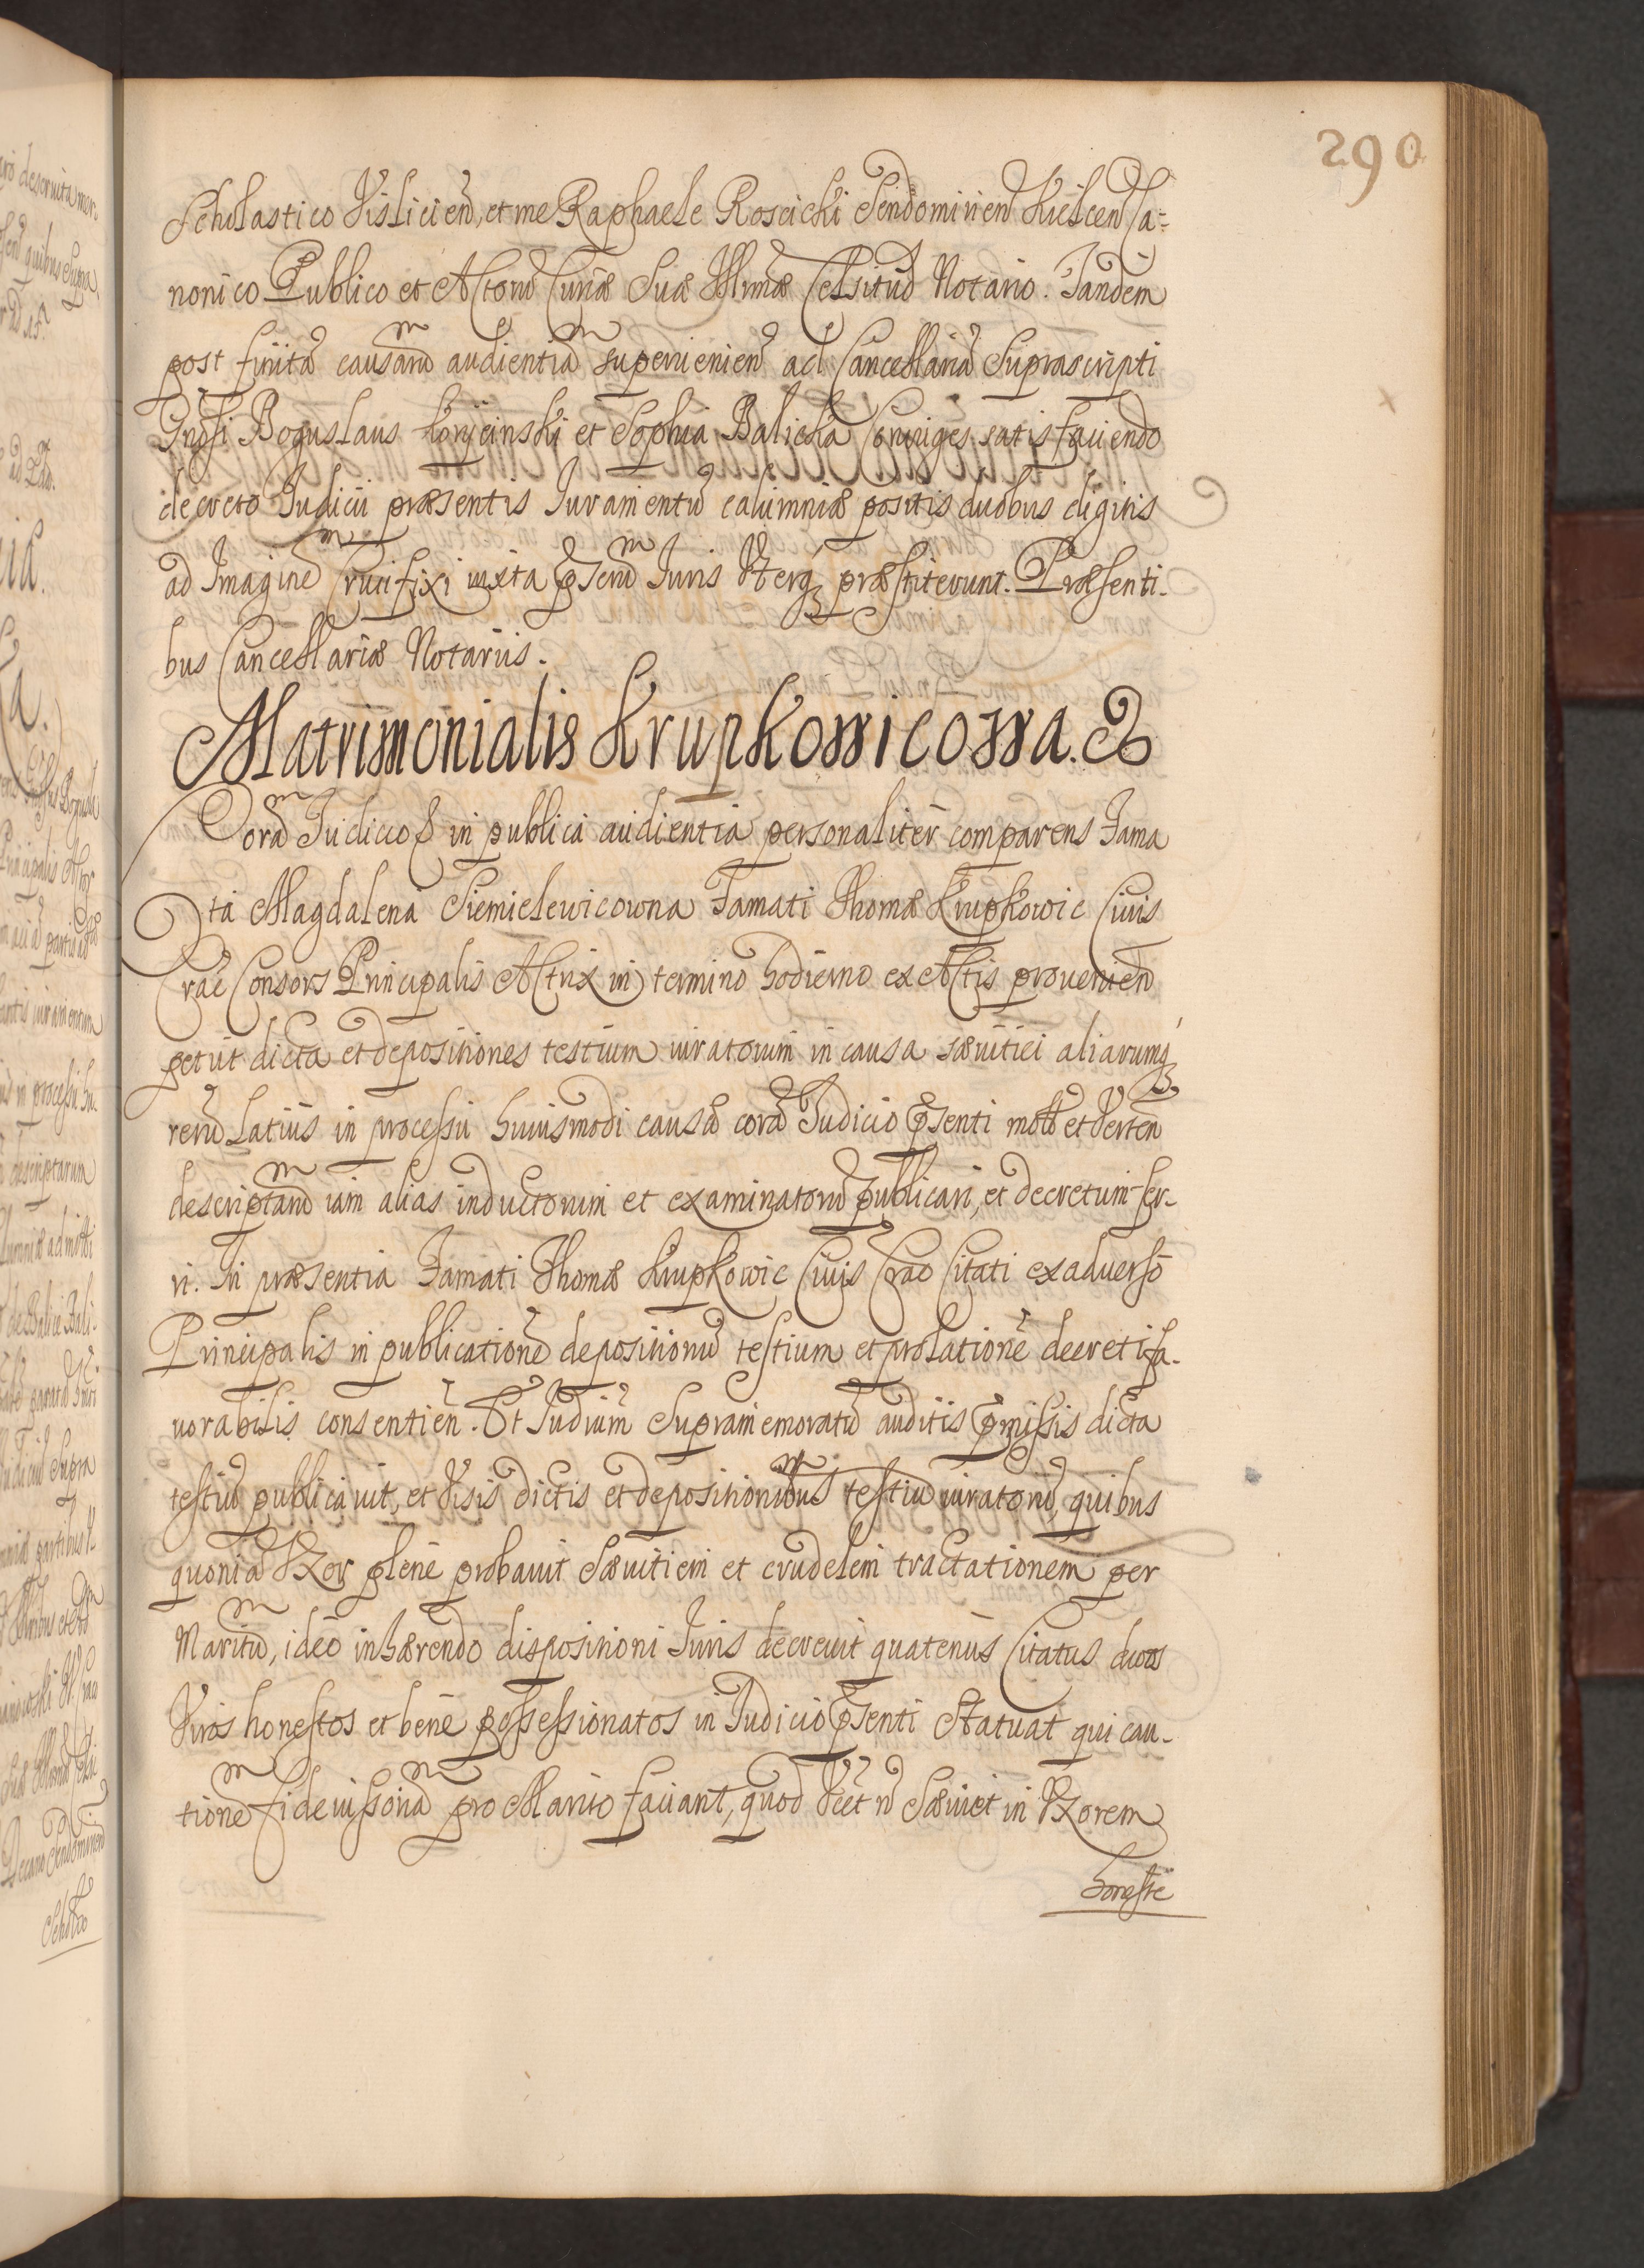 290
Scholastico Vislicien̄, et me Raphaele Roscicki Sendomirien̄ Kielcen̄ Ca-
nonico Publico et Actorū Curiæ Suæ Illmæ Celsitud̄ Notario. Tandem
post finitā causarū audientiā supervenien̄ ad Cancellariā Suprascripti
Gnosi Boguslaus Koryciński et Sophia Balicka Coniuges satisfaciendo
decreto Iudicii præsentis Iuramentū calumniæ positis duobus digitis
ad Imaginē Crucifixi iuxta p̄sēm Iuris Uterq́ præstiterunt. Præsenti-
bus Cancellariæ Notariis.
Matrimonialis Krupkowicowa. &
Corā Iudicio & in publica audientia personaliter comparens Fama
ta Magdalena Siemielewicowna Famati Thomæ Krupkowic Civis
Crac̄ Consors Principalis Actrix in termino hodierno ex Actis provenien̄
petiit dicta et depositiones testium iuratorum in causa sævitiei aliarumq́
rerū latius in processu huiusmodi causæ corā Iudicio p̄senti motæ et Verten̄
descriptarū iam alias inductorum et examinatorū publicari, et decretum fer-
ri. In præsentia Famati Thomæ Krupkowic Civis Crac̄ Citati ex adverso
Principalis in publicationē depositionū testium et prolationē decreti fa-
vorabilis consentien̄. Et Iudiūm Supramemoratū auditis p̄missis dicta
testiū publicavit, et Visis dictis et depositionibus testiū iuratorū, quibus
quoniā Uxor plenè probavit Sævitiem et crudelem tractationem per
Maritū, ideo inhærendo dispositioni Iuris decrevit quatenùs Citatus duos
Viros honestos et benè possessionatos in Iudicio p̄senti Statuat qui cau-
tionē fideiussoriā pro Marito faciant, quod n̄ Sæviet in Uxorem
honeste